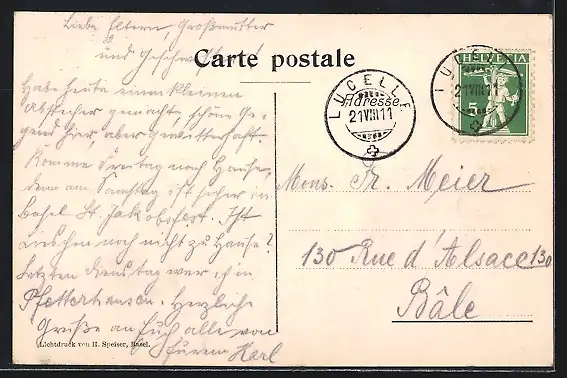 Liebe Eltern, Großmutter
und Geschwister!
Carte postale
Habe heute einen kleinen
Abstecher gemacht, schöne Ge-
gend hier, aber gewitterhaft.
Komme Freitag nach Hause,
denn am Samstag ist sicher in
Basel St. Jakobsfest. Ist
Lieschen noch nicht zu Hause?
Letzten Dienstag war ich in
Pfetterhausen. Herzliche
Grüße an Euch alle von
Eurem Karl
Lichtdruck von H. Speiser, Basel.
LUCELLE
Adresse
21.VIII.11
HELVETIA
5
LUCELLE
21.VIII.11
Mons. Fr. Meier
130 Rue d'Alsace 130
Bâle